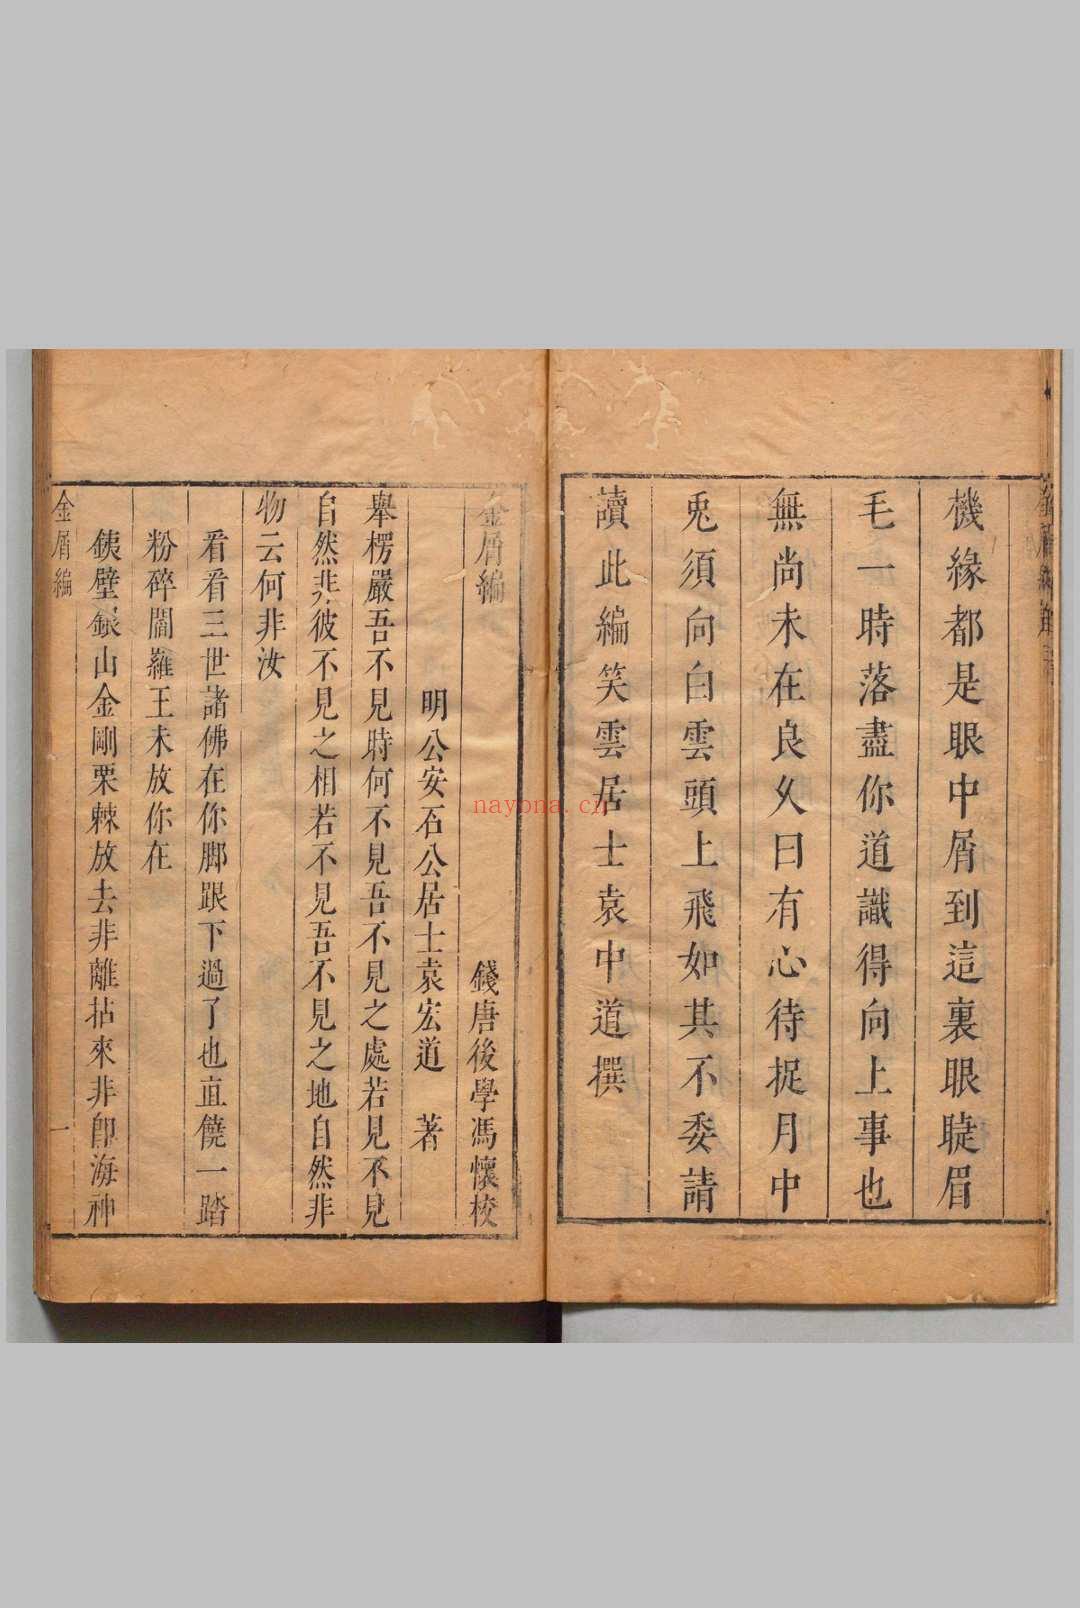 機緣都是眼中屑到這裏眼睫眉
毛一時落盡你道識得向上事也
無尚未在良久曰有心待捉月中
兎須向白雲頭上飛如其不委請
讀此編笑雲居士袁中道撰
金屑編
錢唐後學馮懷校
明公安石公居士袁宏道 著
舉楞嚴吾不見時何不見吾不見之處若見不見
自然非彼不見之相若不見吾不見之地自然非
物云何非汝
看看三世諸佛在你脚跟下過了也直饒一踏
粉碎閻羅王未放你在
銕壁銀山金剛栗棘放去非離拈來非卽海神
金屑編
一
nayona.cn